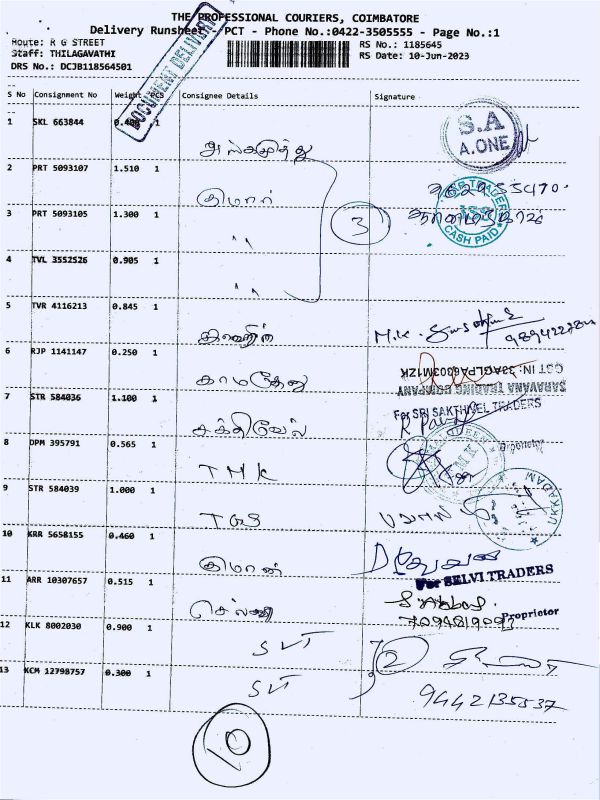 THE PROFESSIONAL COURIERS, COIMBATORE
Delivery Runsheet - PCT - Phone No.:0422-3505555 - Page No.:1
Route: R G STREET
RS No.: 1185645
Staff: THILAGAVATHI
RS Date: 10-Jun-2023
DRS No.: DCJB118564501
DOCUMENT DELIVERY
S No Consignment No Weight PCS Consignee Details Signature
1 SKL 663844 0.400 1
S.A
A.ONE
2 PRT 5093107 1.510 1 குமார்
3 PRT 5093105 1.300 1 " 3
CASH PAID
4 TVL 3552526 0.905 1 "
5 TVR 4116213 0.845 1
M.K.
6 RJP 1141147 0.250 1 காமதேனு
GST IN: 33AGLPA6003M1ZK
SARAVANA TRADING COMPANY
7 STR 584036 1.100 1 சக்திவேல்
For SRI SAKTHIVEL TRADERS
8 DPM 395791 0.565 1 TMK
9 STR 584039 1.000 1 TGS
UKKADAM
10 KRR 5658155 0.460 1
For SELVI TRADERS
11 ARR 10307657 0.515 1 செல்வி
Proprietor
12 KLK 8002030 0.900 1 SVT 2
13 KCM 12798757 0.300 1 SVT
9442135537
10